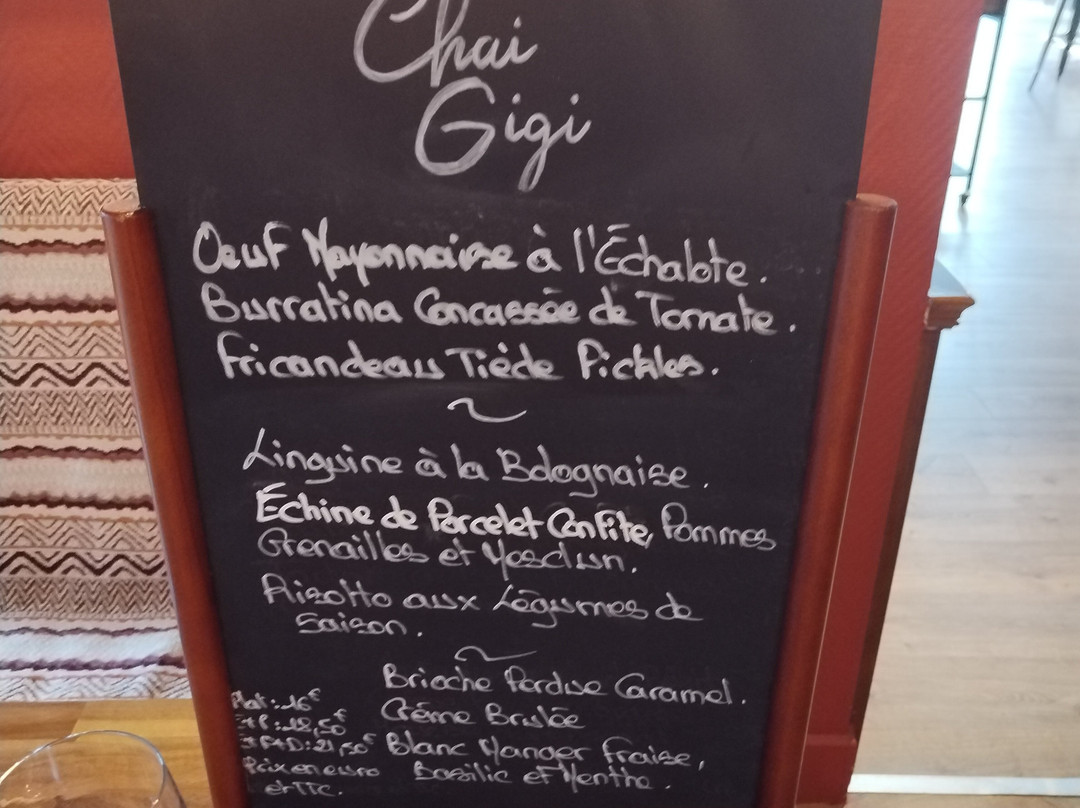 Chai
Gigi
Oeuf Mayonnaise à l'Échalote.
Burratina Concassée de Tomate.
Fricandeau Tiède Pickles.
Linguine à la Bolognaise.
Échine de Porcelet Confite, Pommes
Grenailles et Mesclun.
Risotto aux Légumes de
Saison.
Brioche Perdue Caramel.
Crème Brulée
Blanc Manger Fraise,
Basilic et Menthe.
Plat: 16€
E+P: 18,50€
E+P+D: 21,50€
Prix en euro
et TTC.